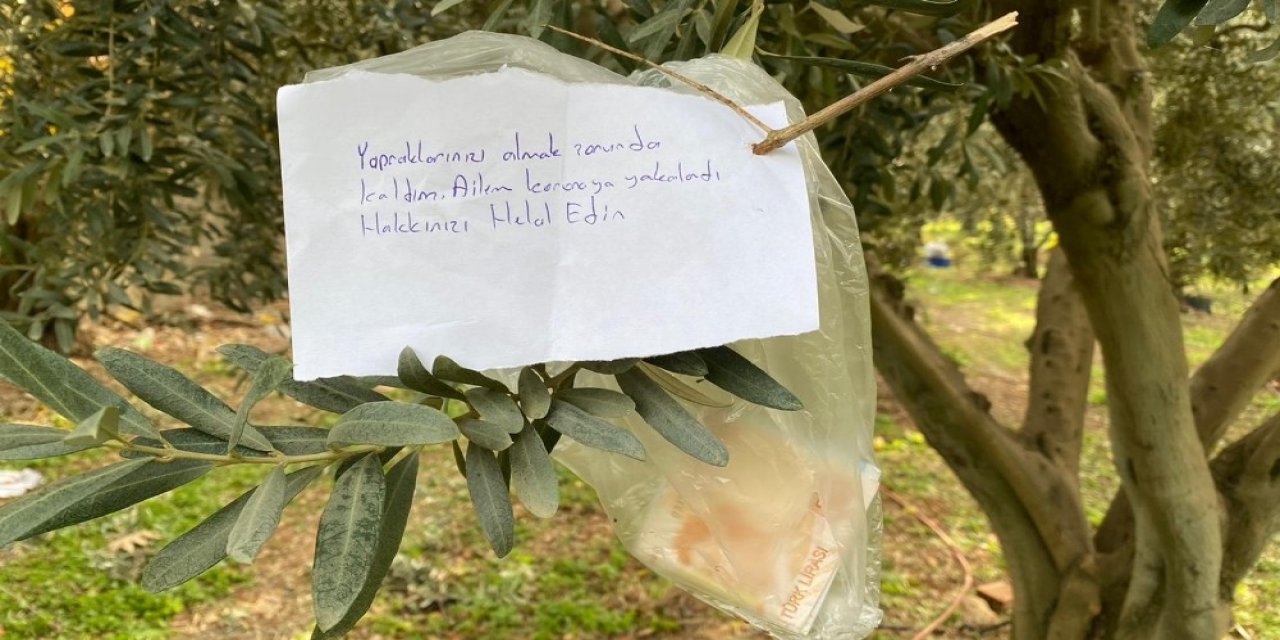 Yapraklarınızı almak zorunda
kaldım. Ailem koronaya yakalandı
Hakkınızı Helal Edin
TÜRK LİRASI